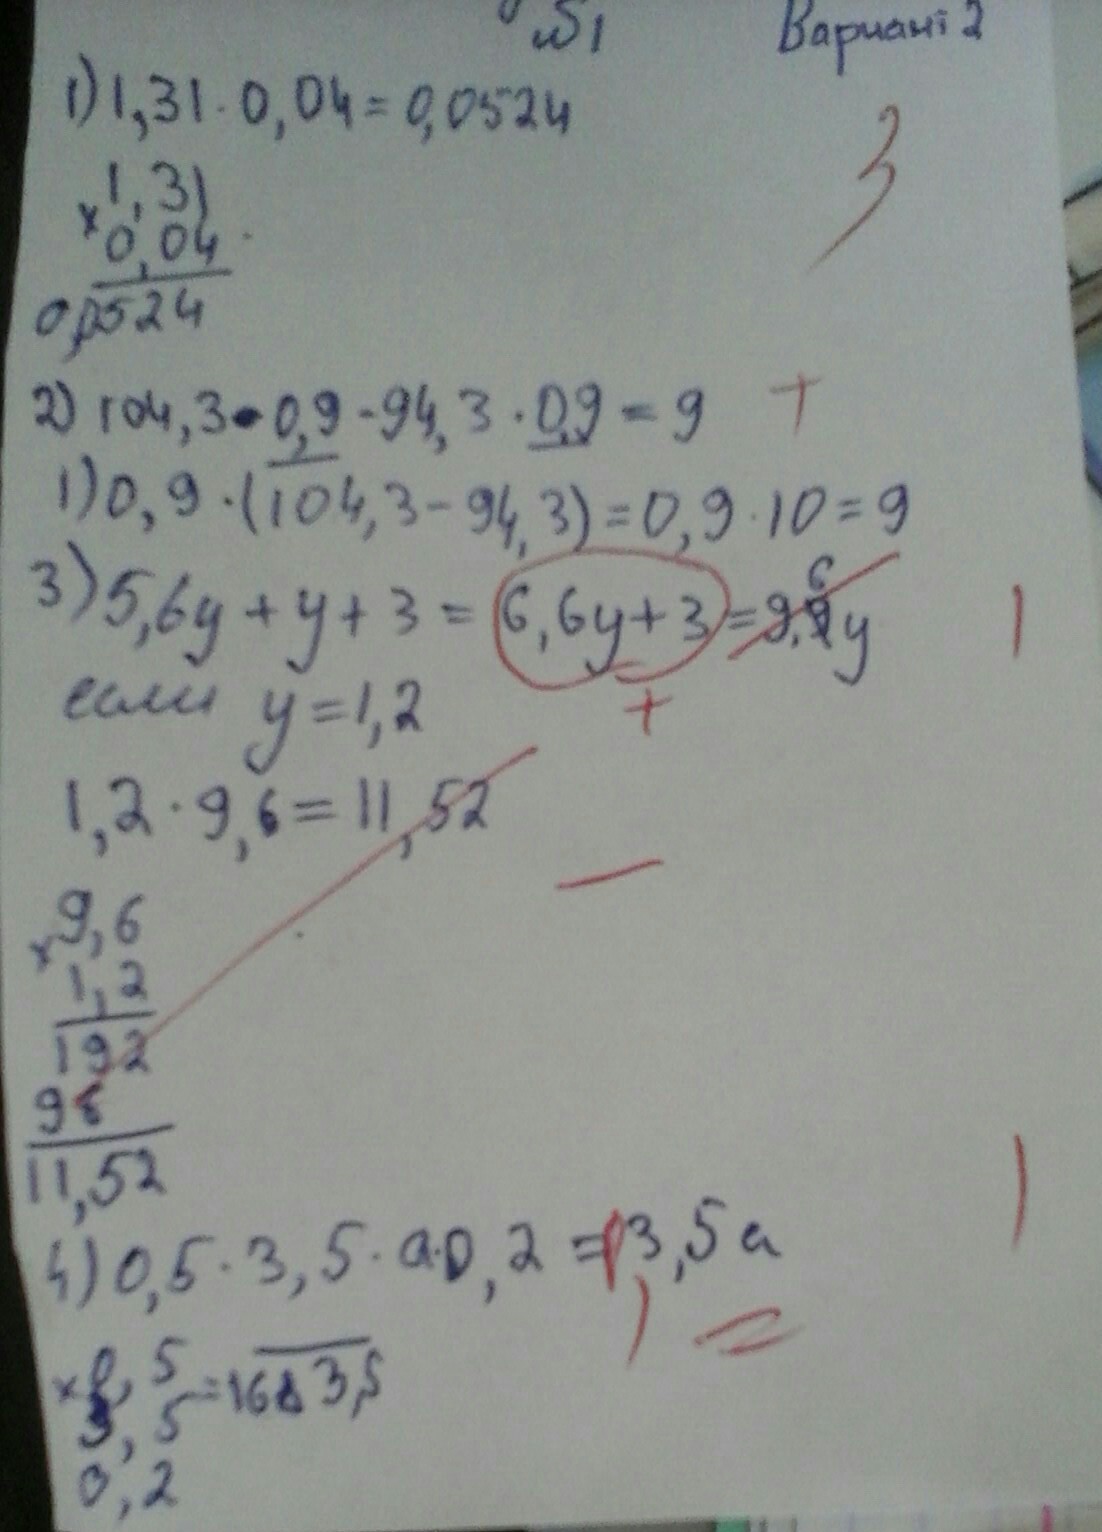 №1 Вариант 2
1) 1,31 · 0,04 = 0,0524
3
× 1,31
0,04
0,0524
2) 104,3 · 0,9 - 94,3 · 0,9 = 9 +
1) 0,9 · (104,3 - 94,3) = 0,9 · 10 = 9
3) 5,6y + y + 3 = 6,6y + 3 = 9,6y 1
если y = 1,2 +
1,2 · 9,6 = 11,52
—
× 9,6
1,2
192
96
11,52
4) 0,5 · 3,5 · a · 0,2 = 3,5a 1
× 0,5
3,5
0,2